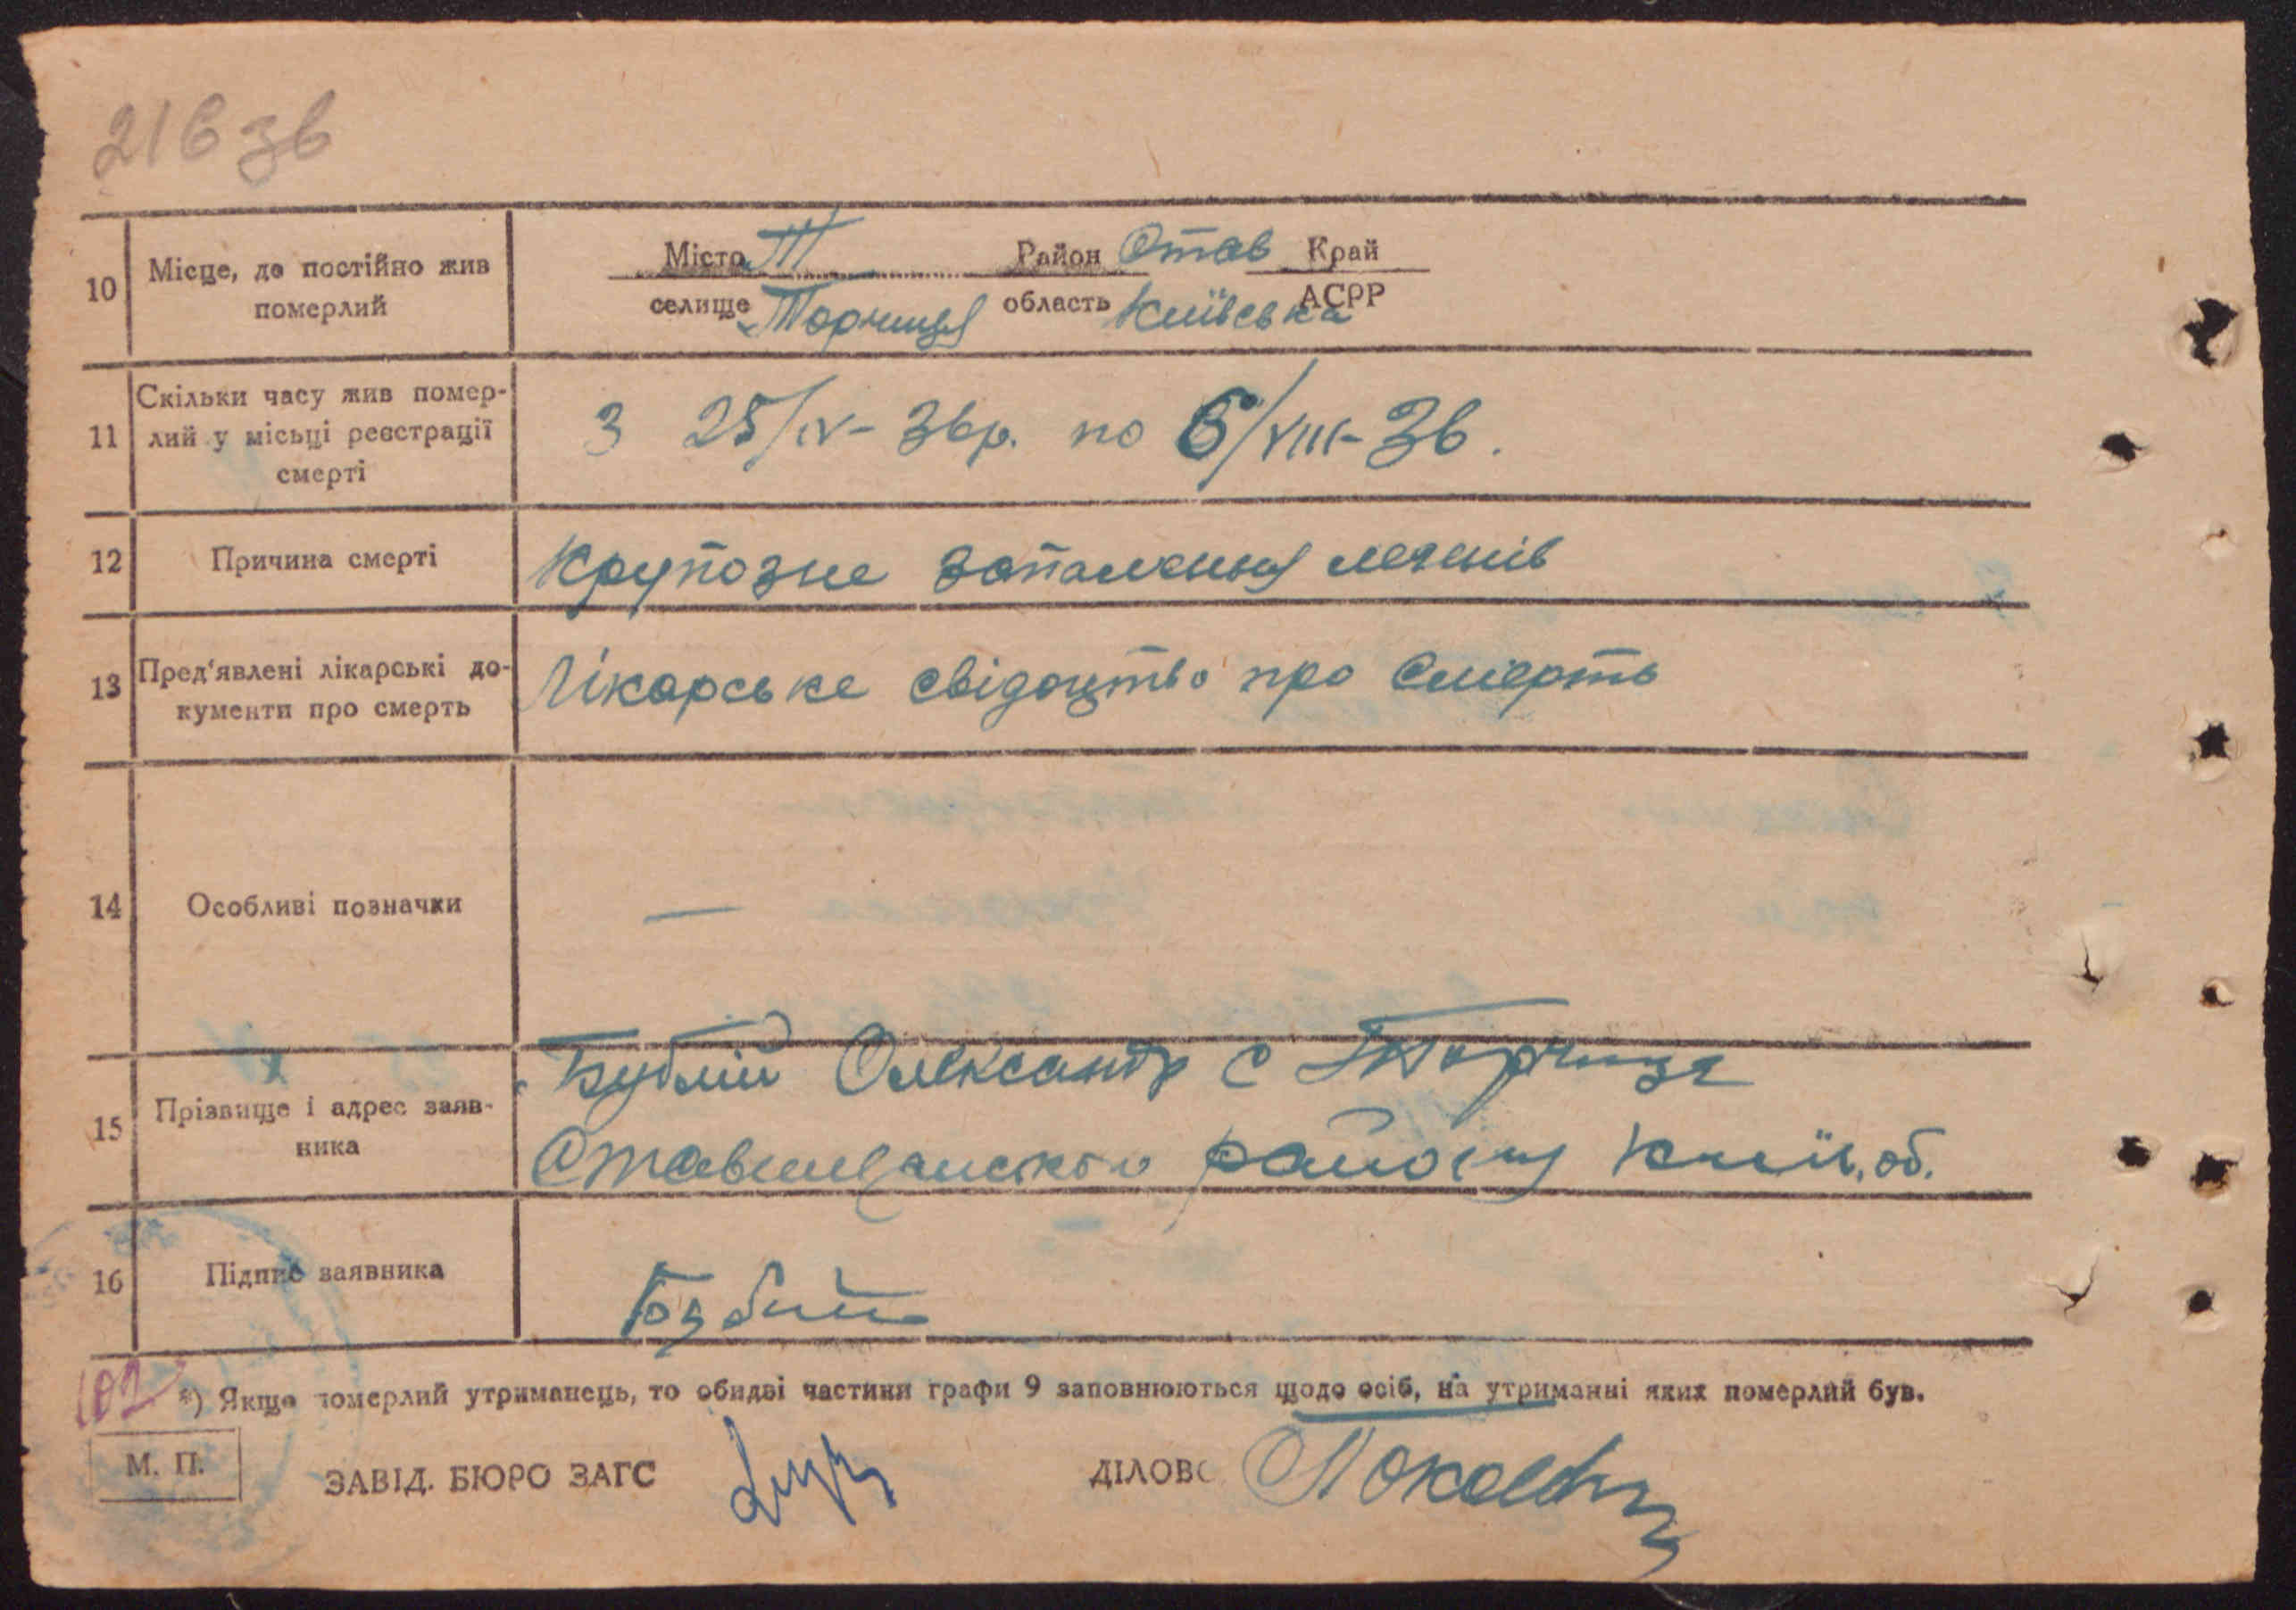 216 зв
10 Місце, де постійно жив померлий
Місто Район Став Край
селище Торчиця область Київська АСРР
11 Скільки часу жив помер-
лий у місьці реєстрації
смерті
З 25/IV-36р. по 6/VIII-36.
12 Причина смерті
Крупозне запалення легенів
13 Пред'явлені лікарські до-
кументи про смерть
Лікарське свідоцтво про смерть
14 Особливі позначки
—
15 Прізвище і адрес заяв-
ника
Бублій Олександр с Торчиця
Ставищанського району Київ. об.
16 Підпис заявника
102
*) Якщо померлий утриманець, то обидві частини графи 9 заповнюються щодо осіб, на утриманні яких померлий був.
М. П.
ЗАВІД. БЮРО ЗАГС
ДІЛОВ